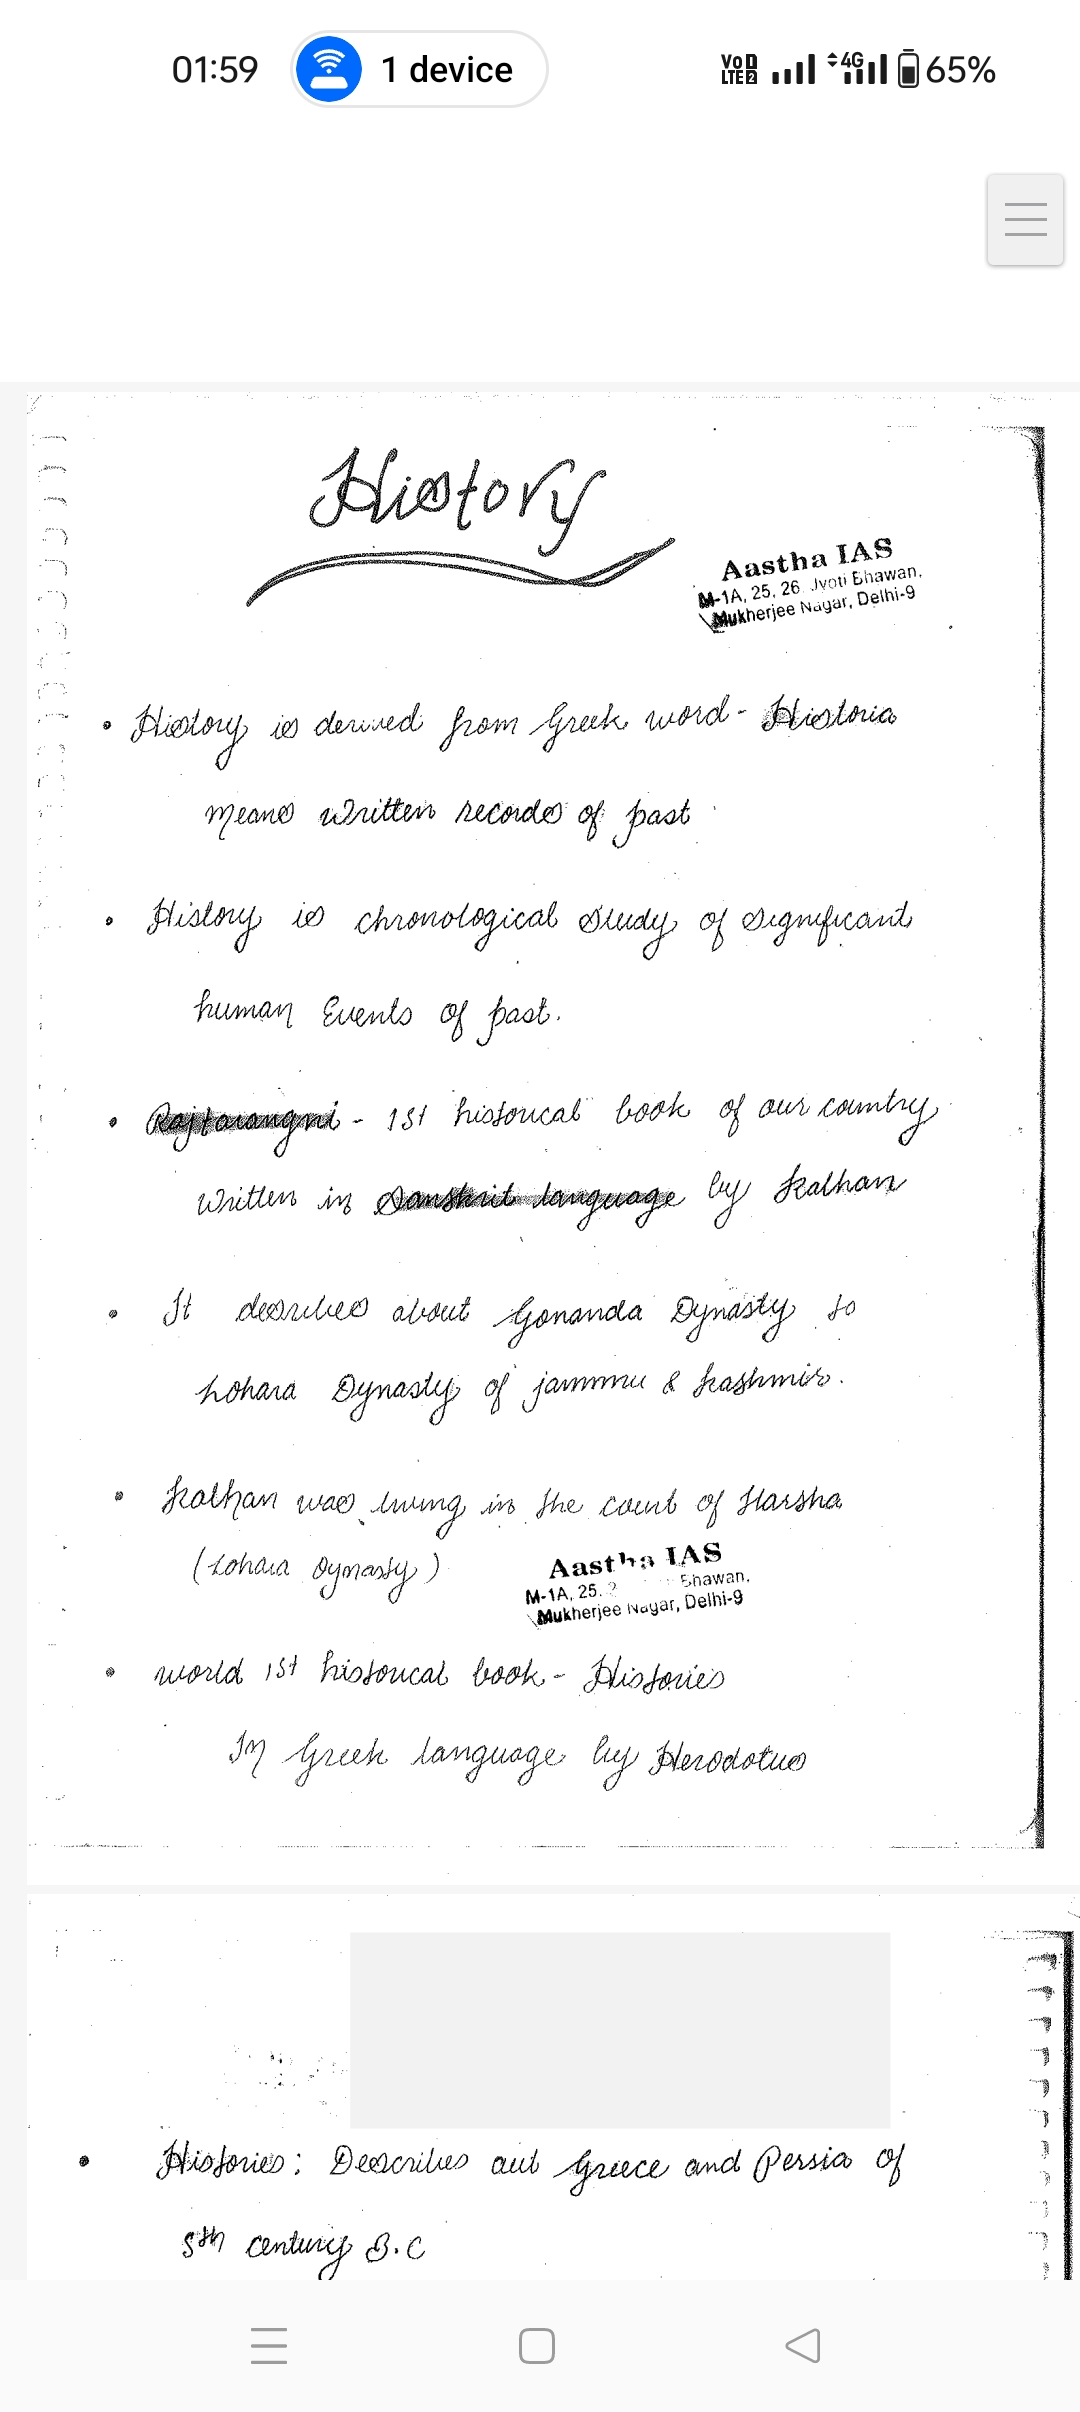 01:59
1 device
VoLTE D2
4G
65%
History
Aastha IAS
M-1A, 25, 26 Jyoti Bhawan,
Mukherjee Nagar, Delhi-9
• History is derived from Greek word - Historia
means written records of past
• History is chronological study of significant
human Events of past.
• Rajtarangni - 1st historical book of our country
written in Sanskrit language by Kalhan
• It describes about Gonanda Dynasty to
Lohara Dynasty of jammu & Kashmir.
• Kalhan was living in the court of Harsha
(Lohara Dynasty)
Aastha IAS
M-1A, 25. Bhawan,
Mukherjee Nagar, Delhi-9
• world 1st historical book - Histories
In Greek language by Herodotus
• Histories: Describes aut Greece and Persia of
5th century B.C